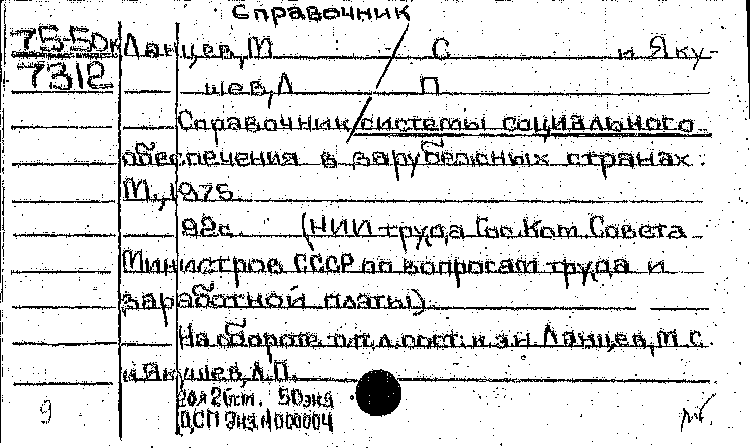 Справочник
75-50к Ланцев, М С и Яку-
7312 шев, Л П
Справочник/системы социального
обеспечения в зарубежных странах.
М., 1975.
92с. (НИИ труда Гос.Ком.Совета
Министров СССР по вопросам труда и
заработной платы).
На обороте тит.л.сост.:
Ланцев, М.С.
и Якушев, Л.П.
26ст. 50экз
ДСП Экз.№000004
9